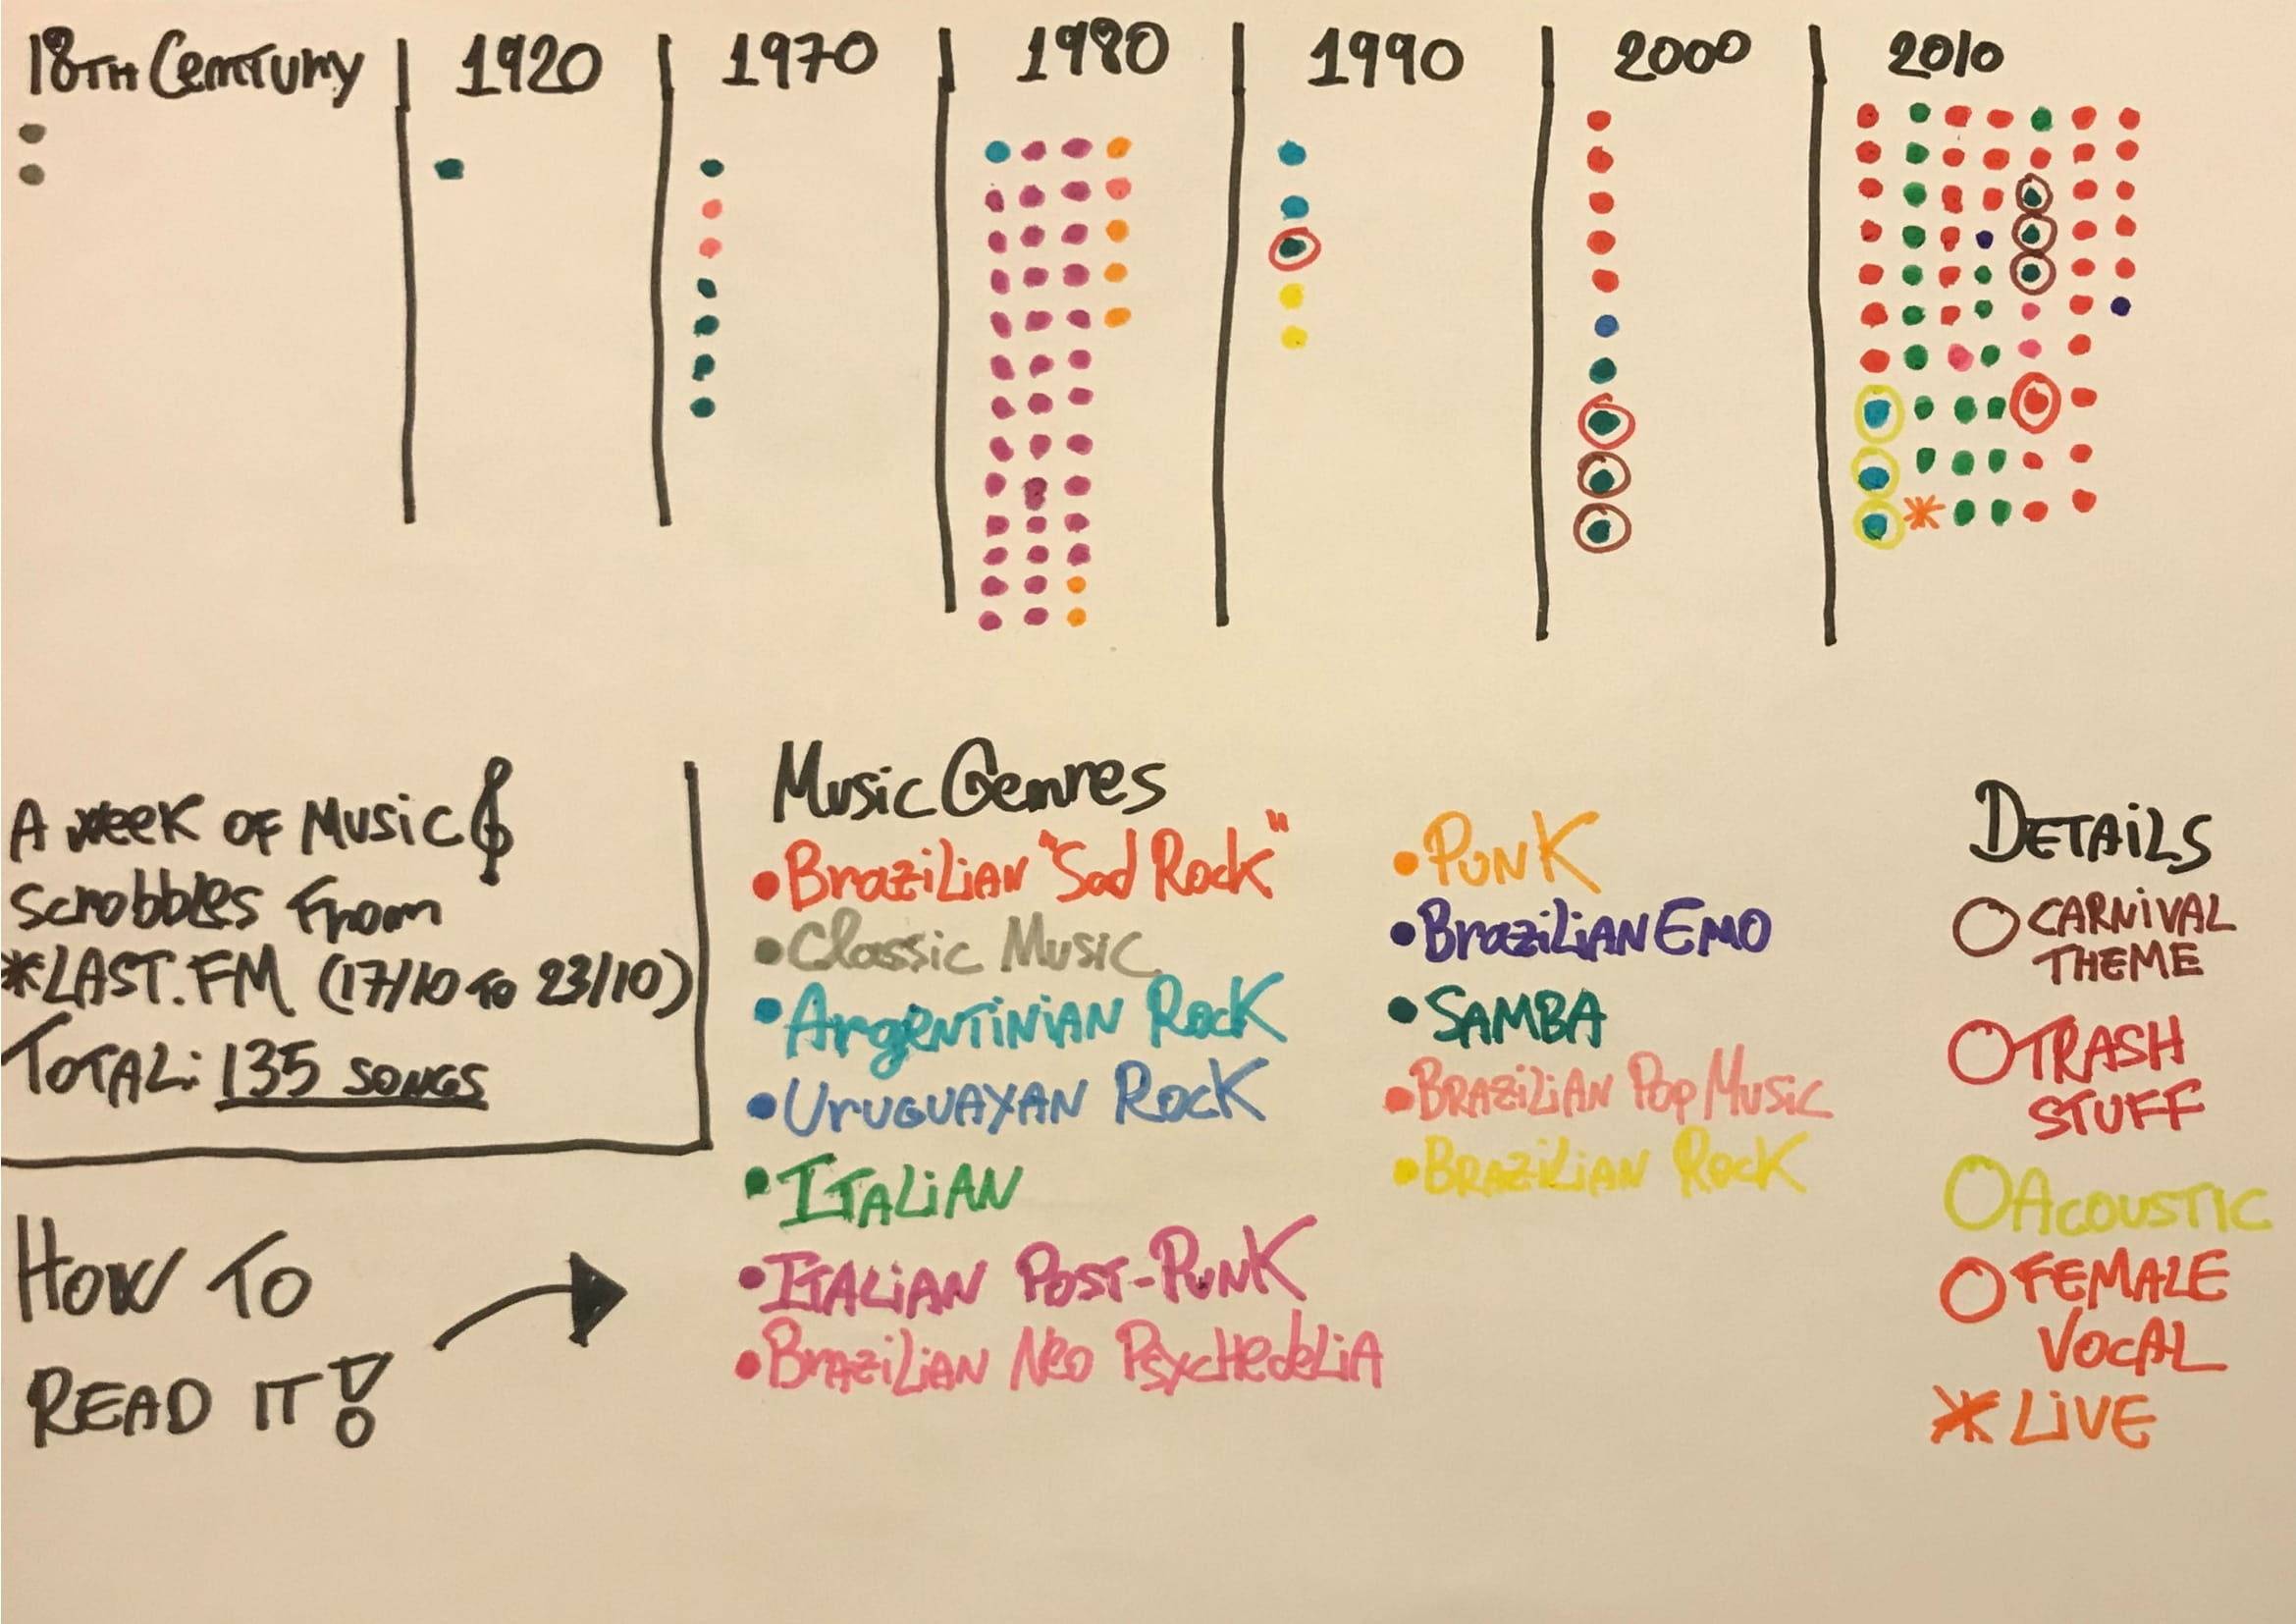 18TH CENTURY | 1920 | 1970 | 1980 | 1990 | 2000 | 2010
A week OF Music
Scrobbles From
*LAST.FM (17/10 to 23/10)
TOTAL: 135 SONGS
HOW TO
READ IT!
Music Genres
Brazilian "Sad Rock"
Classic Music
Argentinian Rock
Uruguayan Rock
Italian
Italian Post-Punk
Brazilian Neo Psychedelia
Punk
Brazilian Emo
SAMBA
Brazilian Pop Music
Brazilian Rock
DETAILS
CARNIVAL
THEME
TRASH
STUFF
ACOUSTIC
FEMALE
VOCAL
* LIVE